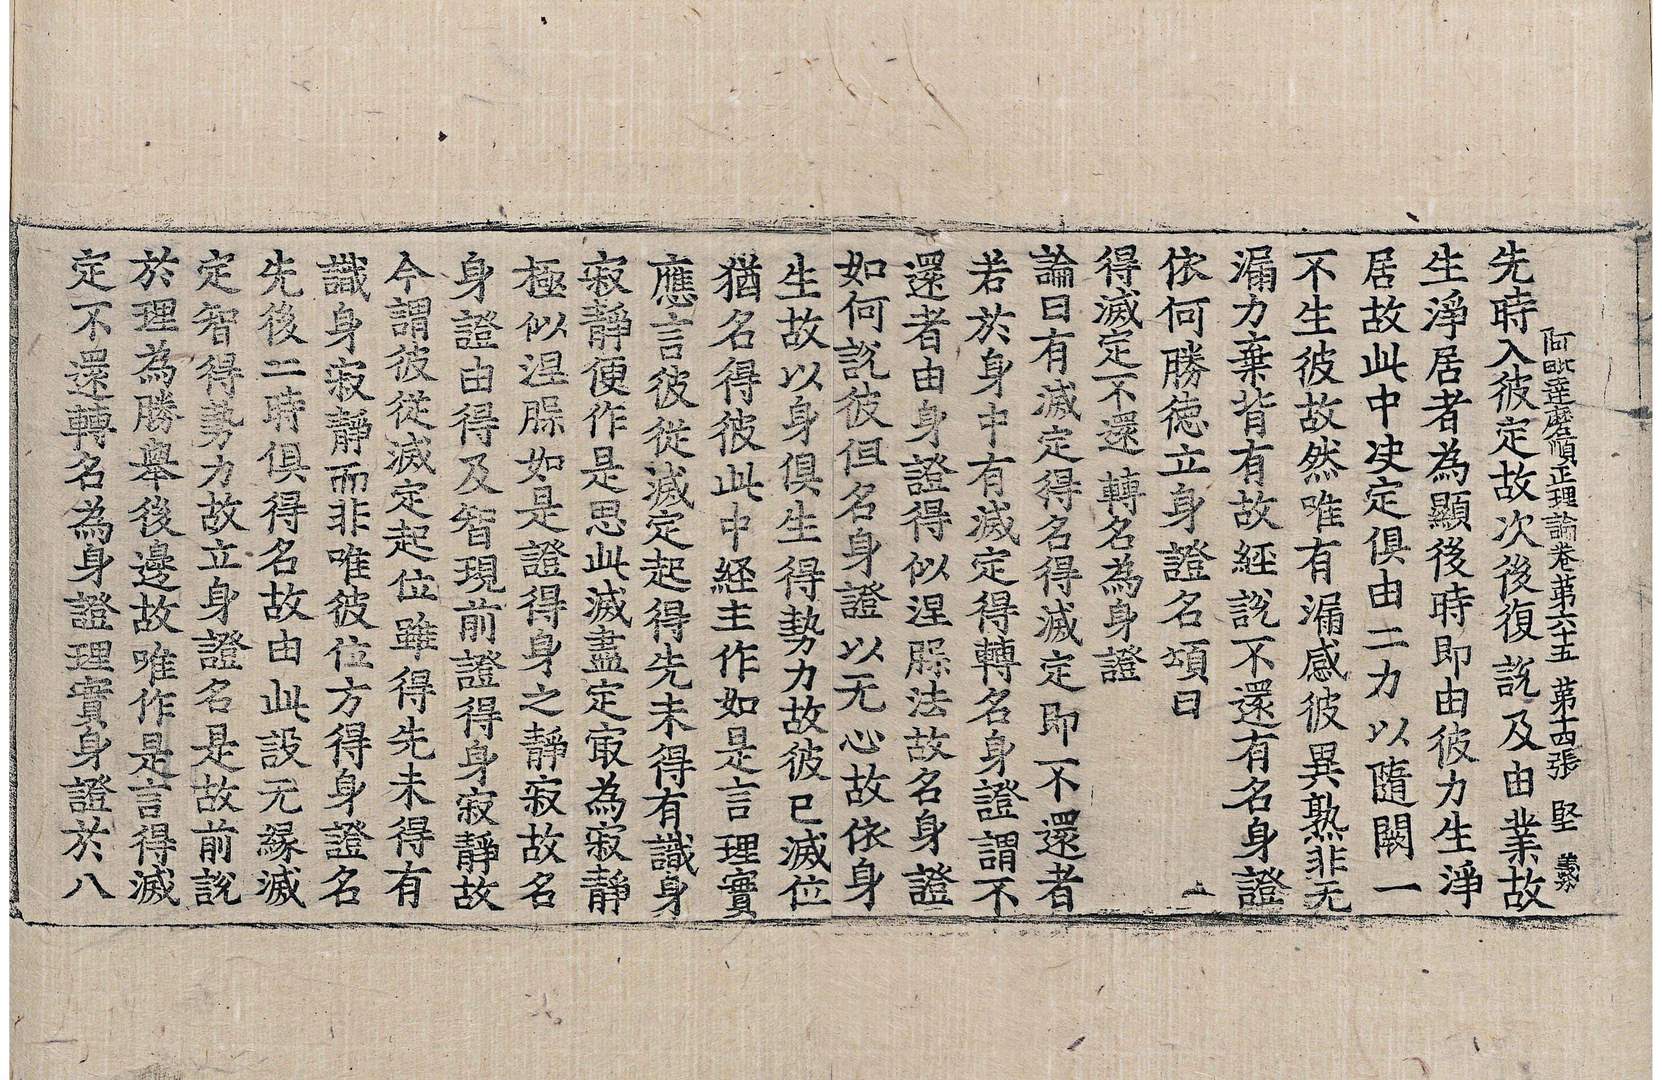 阿毗達磨順正理論卷苐六十五 苐十四張 堅
先時入彼定故次後復說及由業故
生淨居者為顯後時即由彼力生淨
居故此中决定俱由二力以隨闕一
不生彼故然唯有漏感彼異熟非无
漏力棄背有故經說不還有名身證
依何勝德立身證名頌曰
得滅定不還 轉名為身證
論曰有滅定得名得滅定即不還者
若於身中有滅定得轉名身證謂不
還者由身證得似涅槃法故名身證
如何說彼但名身證以无心故依身
生故以身俱生得勢力故彼已滅位
猶名得彼此中経主作如是言理實
應言彼從滅定起得先未得有識身
寂靜便作是思此滅盡定㝡為寂靜
極似涅槃如是證得身之靜寂故名
身證由得及智現前證得身寂靜故
今謂彼從滅定起位雖得先未得有
識身寂靜而非唯彼位方得身證名
先後二時俱得名故由此設无緣滅
定智得勢力故立身證名是故前說
於理為勝舉後邊故唯作是言得滅
定不還轉名為身證理實身證於八